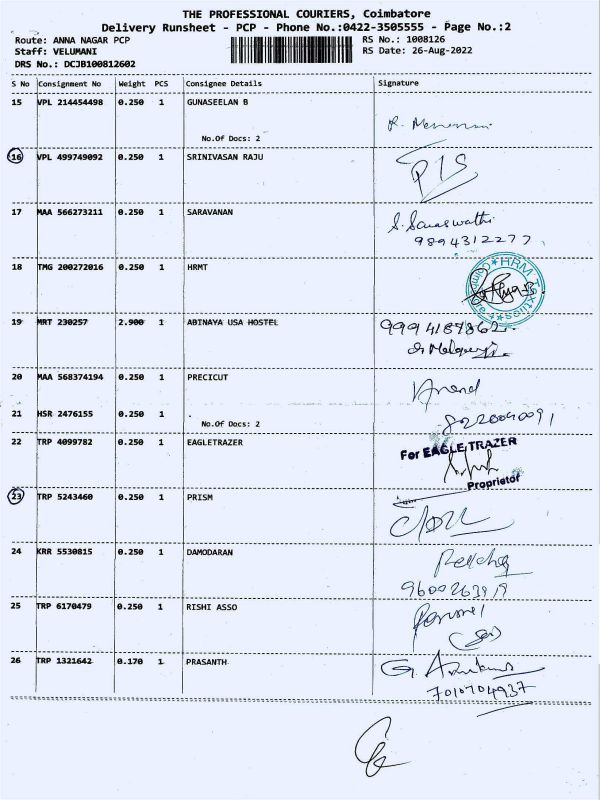 THE PROFESSIONAL COURIERS, Coimbatore
Delivery Runsheet - PCP - Phone No.:0422-3505555 - Page No.:2
Route: ANNA NAGAR PCP
RS No.: 1008126
Staff: VELUMANI
RS Date: 26-Aug-2022
DRS No.: DCJB100812602
S No Consignment No Weight PCS Consignee Details Signature
15 VPL 214454498 0.250 1 GUNASEELAN B
No.Of Docs: 2
16 VPL 499749092 0.250 1 SRINIVASAN RAJU
17 MAA 566273211 0.250 1 SARAVANAN
S. Saraswathi
9894312277
18 TMG 200272016 0.250 1 HRMT
HRM Textiles
19 MRT 230257 2.900 1 ABINAYA USA HOSTEL
20 MAA 568374194 0.250 1 PRECICUT
Anand
21 HSR 2476155 0.250 1 .
No.Of Docs: 2
8220040091
22 TRP 4099782 0.250 1 EAGLETRAZER
For EAGLE TRAZER
Proprietor
23 TRP 5243460 0.250 1 PRISM
24 KRR 5530815 0.250 1 DAMODARAN
25 TRP 6170479 0.250 1 RISHI ASSO
26 TRP 1321642 0.170 1 PRASANTH
7010704937